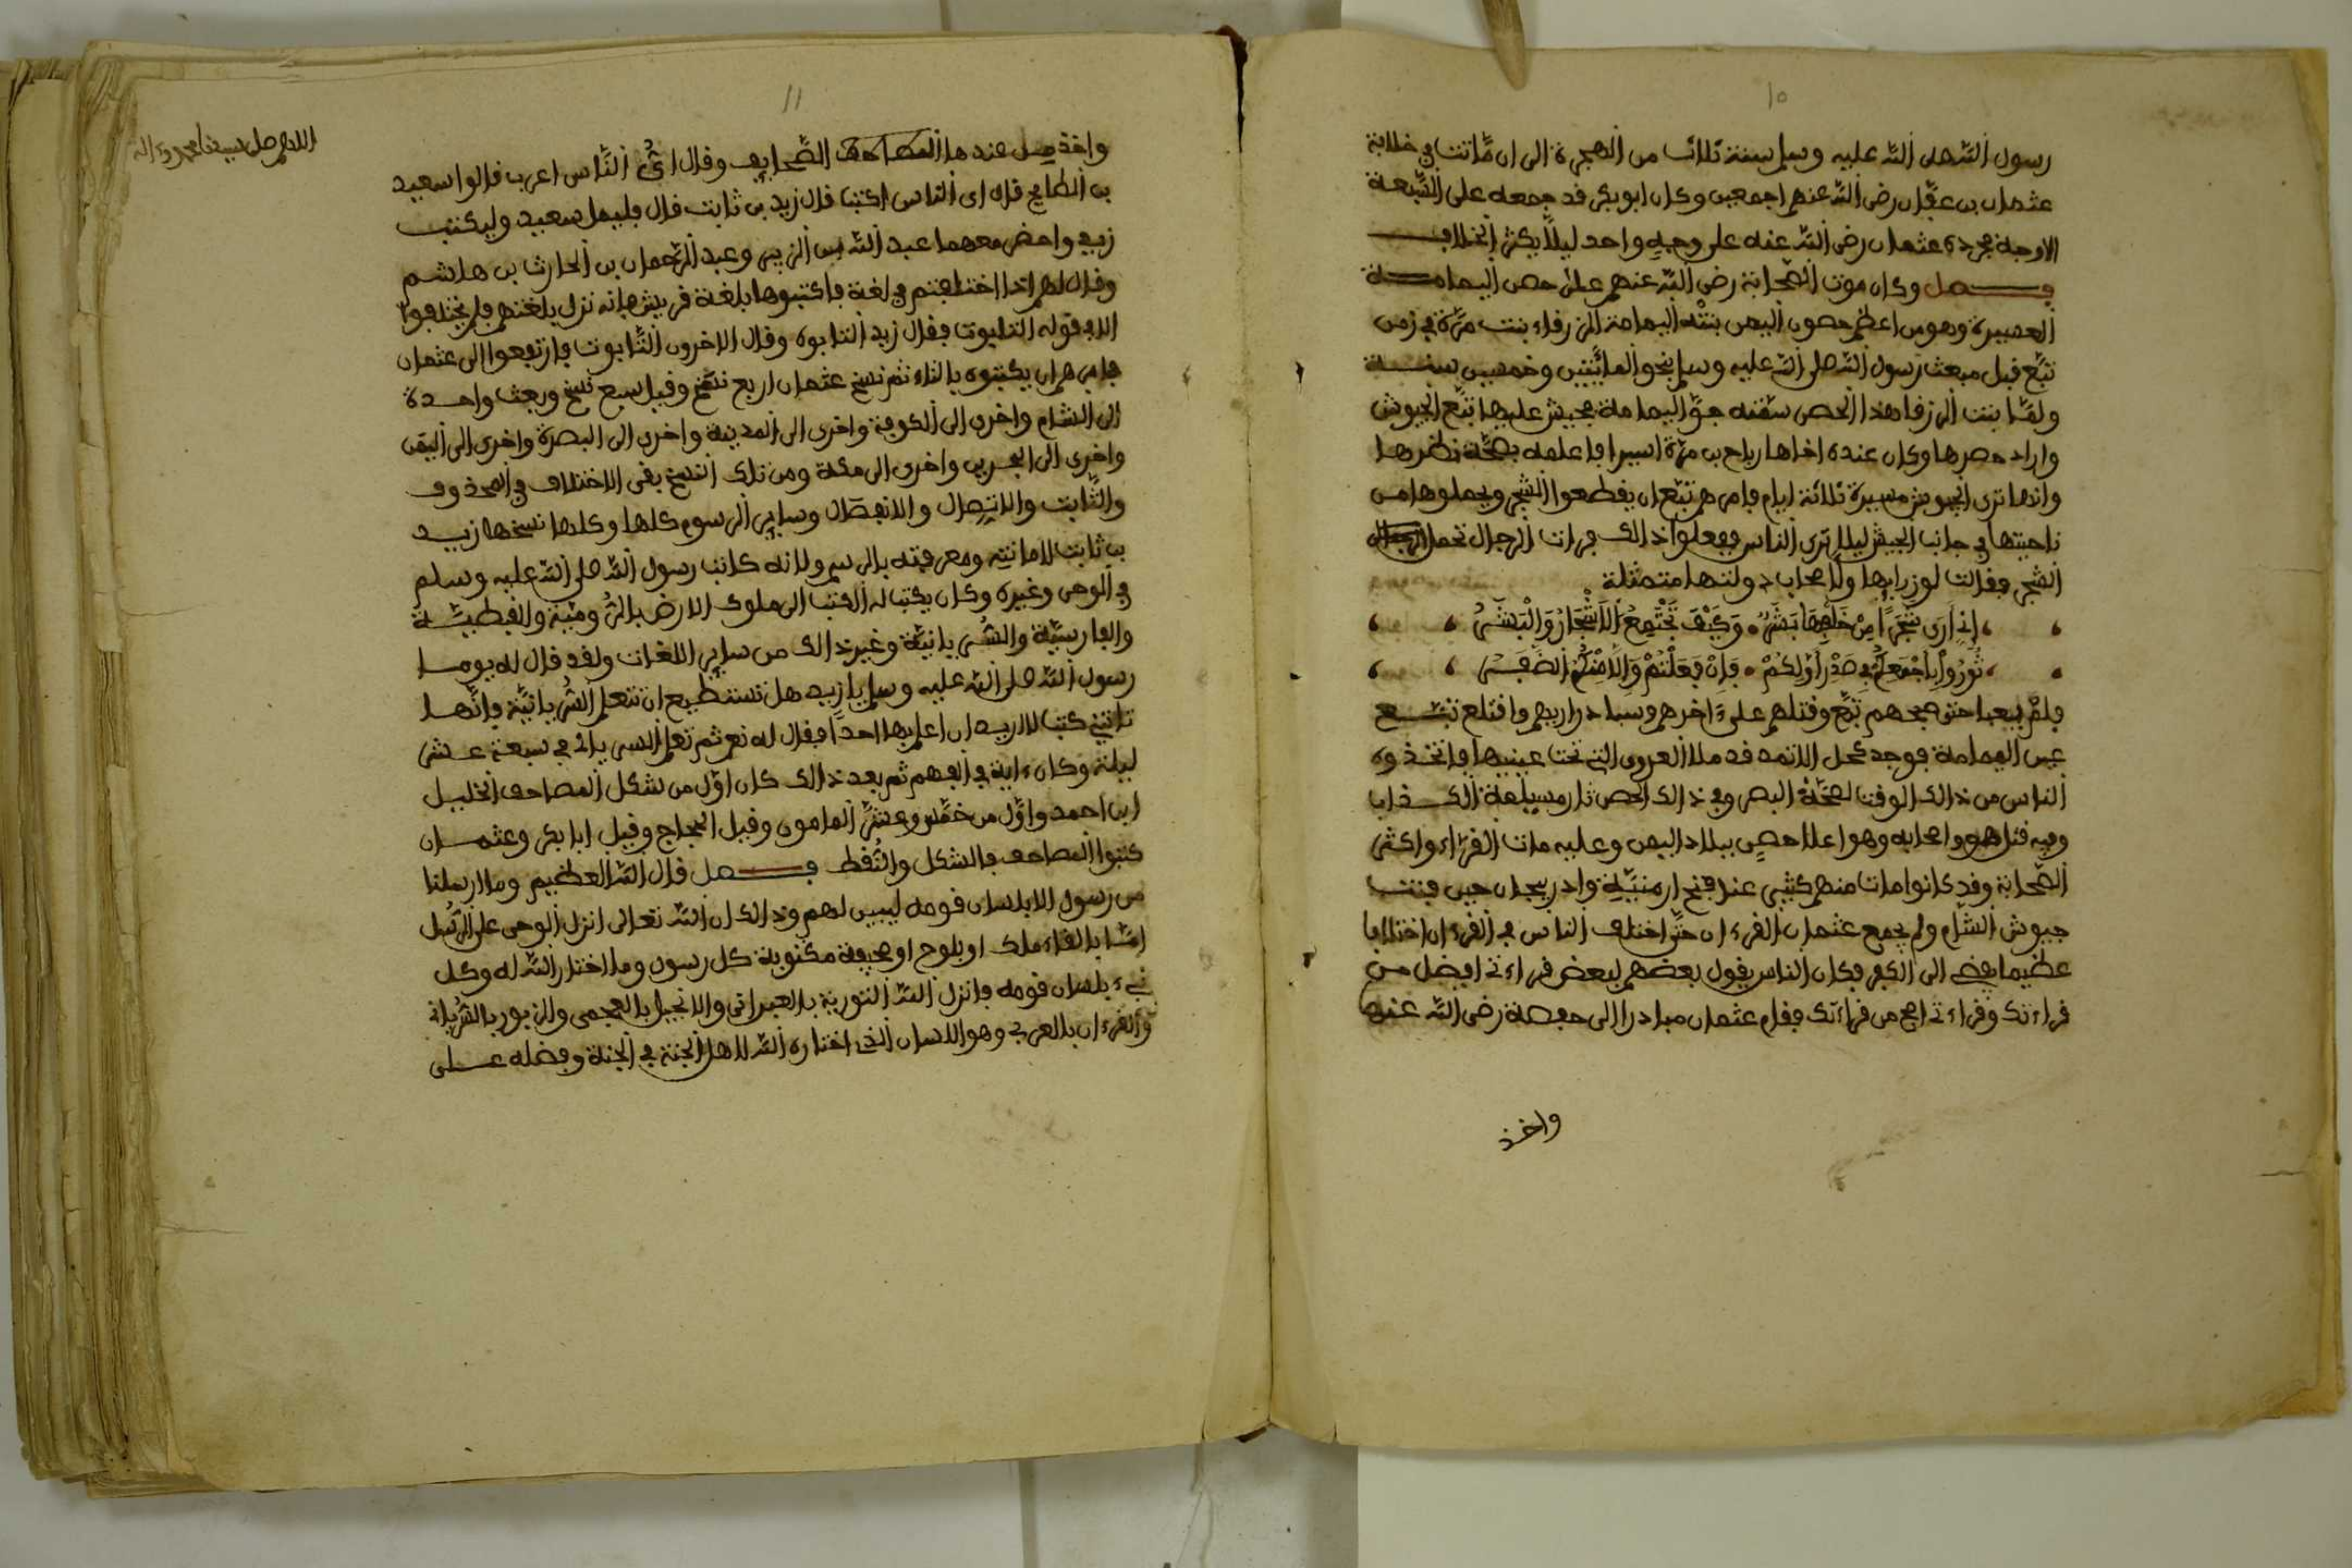 ١٠
رسول الله صلى الله عليه وسلم سنة ثلاث من الهجرة الى ان ماتت في خلافة
عثمان بن عفان رضى الله عنهم اجمعين وكان ابو بكر قد جمعه على السبعة
الاوجه فجرده عثمان رضى الله عنه على وجه واحد ليلا يكثر الخلاف
فصل وكان موت الصحابة رضى الله عنهم على حصن اليمامة
العصيرة وهو من اعظم حصون اليمن بنته اليمامة الزرفاء بنت مرة في زمن
تبع قبل مبعث رسول الله صلى الله عليه وسلم بنحو المائتين وخمسين سنة
ولما بنت الزرفا هذا الحصن سمته جو اليمامة فجيش عليها تبع الجيوش
واراد حصرها وكان عنده اخاها رياح بن مرة اسيرا فاعلمه بصحة نظرها
وانها ترى الجيوش مسيرة ثلاثة ايام فامرهم تبع ان يقطعوا الشجر ويحملوها من
ناحيتها في جانب الجيش ليلا ترى الناس ففعلوا ذالك فرات الرجال تحمل
الشجر فقالت لوزرايها ولاصحاب دولتها متمثلة
اني ارى شجرا من خلفها بشر وكيف تجتمع الاشجار والبشر
ثوروا باجمعكم في صدر اولكم فان فعلتم والا منكم الضفر
فلم حتى صبحهم تبع وقتلهم على ءاخرهم وسبا دراريهم واقتلع تبع
عين اليمامة فوجد كحل الاثمد قد ملا العروق التي تحت عينيها فاتخذوه
الناس من ذالك الوقت لصحة البصر وفي ذالك الحصن ثار مسيلمة الكذاب
وفيه قتل هو واصحابه وهو اعلا حصن ببلاد اليمن وعليه مات القراء واكثر
الصحابة وقد كانوا مات منهم كثير عند فتح ارمنية وادربيجان حين فتحت
جيوش الشام ولم يجمع عثمان القرءان حتى اختلف الناس في القرءان اختلافا
عظيما يفضى الى الكفر فكان الناس يقول بعضهم لبعض قراءتى افضل من
قراءتك وقراءتى اصح من قراءتك فقام عثمان مبادرا الى حفصة رضى الله عنها
واخذ
١١
اللهم صل على سيدنا محمد وءاله
واخذ من عندها المصاحف الصحايف وقال اي الناس اعرب قالوا سعيد
بن العاصى قال اى الناس اكتب قال زيد بن ثابت قال فليمل سعيد وليكتب
زيد واحضر معهما عبد الله بن الزبير وعبد الرحمان بن الحارث بن هاشم
وقال لهم اذا اختلفتم في لغة فاكتبوها بلغة قريش فانه نزل بلغتهم فلم يختلفوا
الا في قوله التابوت فقال زيد التابوه وقال الاخرون التابوت فارتفعوا الى عثمان
فامرهم ان يكتبوه بالتاء ثم نسخ عثمان اربع نسخ وقيل سبع نسخ وبعث واحدة
الى الشام واخرى الى الكوفة واخرى الى المدينة واخرى الى البصرة واخرى الى اليمن
واخرى الى البحرين واخرى الى مكة ومن تلك النسخ بقى الاختلاف في المحذوف
والثابت والاتصال والانفصال وساير الرسوم كلها وكلها نسخها زيد
بن ثابت لامانته ومعرفته بالرسم ولانه كاتب رسول الله صلى الله عليه وسلم
في الوحى وغيره وكان يكتب له الكتب الى ملوك الارض بالرومية والقبطية
والفارسية والسريانية وغير ذالك من ساير اللغات ولقد قال له يوما
رسول الله صلى الله عليه وسلم يا زيد هل تستطيع ان تتعلم السريانية فانها
تاتيني كتب لا اريد ان اعلم بها احدا فقال له نعم ثم تعلم السرياني في سبعة عشر
ليلة وكان ءاية في الفهم ثم بعد ذالك كان اول من شكل المصاحف الخليل
ابن احمد واول من خمس وعشر المامون وقيل الحجاج وقيل ابا بكر وعثمان
كتبوا المصاحف بالشكل والنقط فصل قال الله العظيم وما ارسلنا
من رسول الا بلسان قومه ليبين لهم وذالك ان الله تعالى انزل الوحى على الرسل
اما بالقاء ملك او بلوح او صحيفة مكتوبة كل رسول وما اختار الله له وكل
نبيء بلسان قومه فانزل الله التورية بالعبرانى والانجيل بالعجمى والزبور بالسرياني
والقرءان بالعربي وهو اللسان الذي اختاره الله لاهل الجنة في الجنة وفضله على